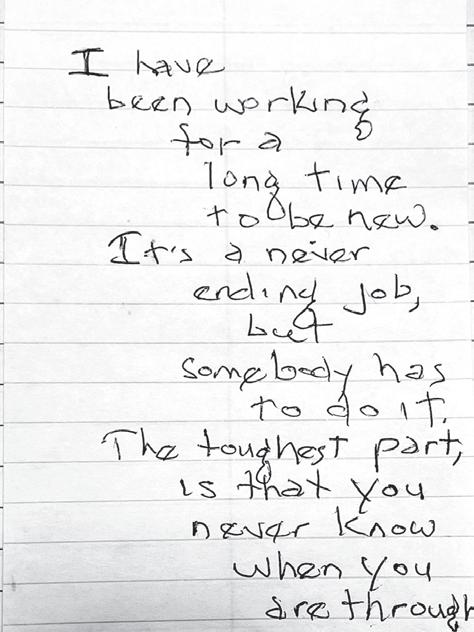 I have
been working
for a
long time
to be new.
It's a never
ending job,
but
somebody has
to do it.
The toughest part,
is that you
never know
when you
are through